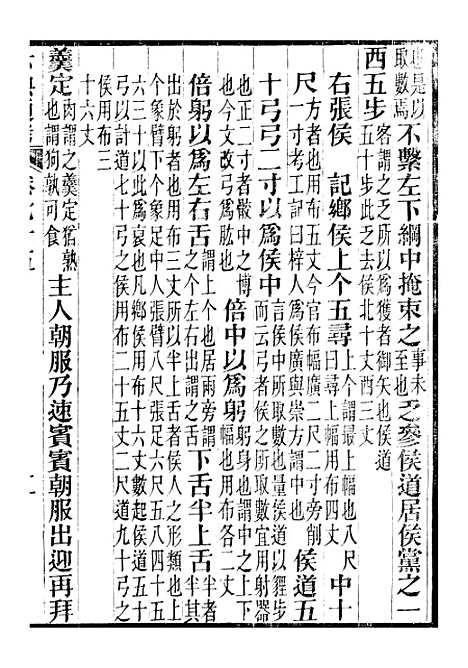 也是以
取數焉
不繫左下綱中掩束之
事未
至也
乏參侯道居侯黨之一
西五步
容謂之乏所以為獲者御矢也侯道
五十步此乏去侯北十丈西三丈
右張侯 記鄉侯上个五尋
上个謂最上幅也八尺
曰尋上幅用布四丈
中十
尺
方者也用布五丈今官布幅廣二尺二寸旁削
一寸考工記曰梓人為侯廣與崇方謂中也
侯道五
十弓弓二寸以為侯中
言侯中所取數也量侯道以貍步
而云弓者侯之所取數宜用射器
也正二寸者骹中之博
也今文改弓為肱也
倍中以為躬
躬身也謂中之上下
幅也用布各二丈
倍躬以為左右舌
謂上个也居兩旁謂
之个左右出謂之舌
下舌半上舌
半者半其
出於躬者也用布三丈所以半上舌者侯人之形類也上
个象臂下个象足中人張臂八尺張足六尺五八四十五
六三十以此為衰也凡鄉侯用布十六丈數起侯道五十
弓以計道七十弓之侯用布二十五丈二尺道九十弓之
侯用布三
十六丈
羹定
肉謂之羹定猶熟
也謂狗孰可食
主人朝服乃速賓賓朝服出迎再拜
卷九十五
二